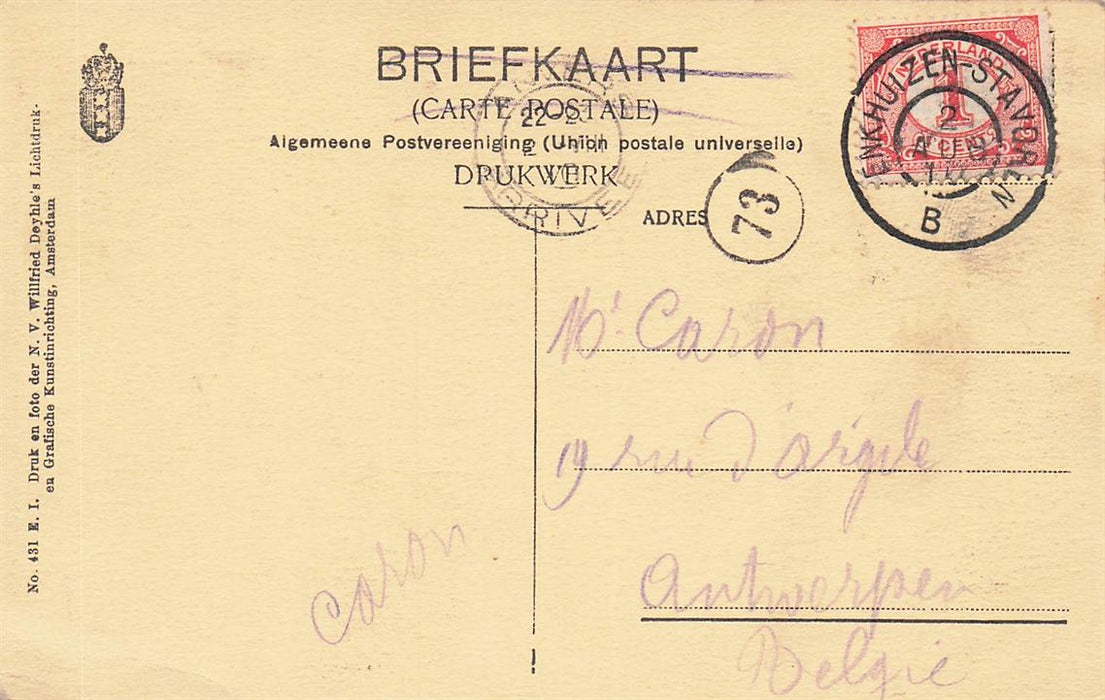 BRIEFKAART
(CARTE POSTALE)
Algemeene Postvereeniging (Union postale universelle)
DRUKWERK
ADRES
73
NEDERLAND
1
CENT
ENKHUIZEN-STAVOREN
2
AUG
B
22-23
2
GRIVEE
Mr. Caron
19 rue d'argile
Antwerpen
België
Caron
No. 431 E. I. Druk en foto der N. V. Willfried Deyhle's Lichtdruk-
en Grafische Kunstinrichting, Amsterdam